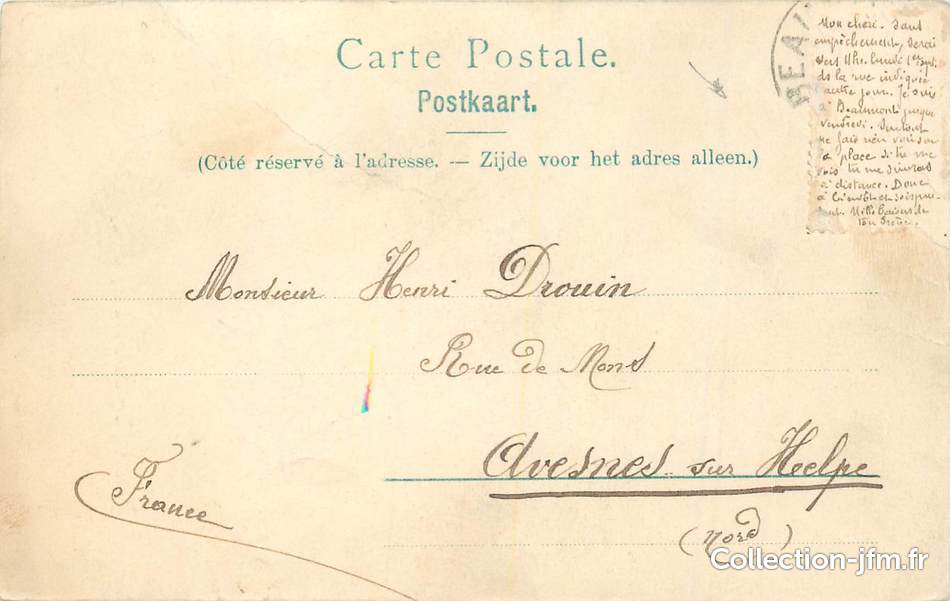 Carte Postale.
Postkaart.
(Côté réservé à l'adresse. — Zijde voor het adres alleen.)
BEAU
Mon chéri. Sauf
empêchement, serai
vers 11h. lundi 1er sept.
ds la rue indiquée
l'autre jour. Je suis
à Beaumont jusque
vendredi. Surtout
ne fais rien voir sur
la place si tu me
vois tu me suivras
à distance. Donc
à bientôt et
Mille baisers de
ton
Monsieur Henri Drouin
Rue de Mons
Avesnes sur Helpe
(Nord)
France
Collection-jfm.fr